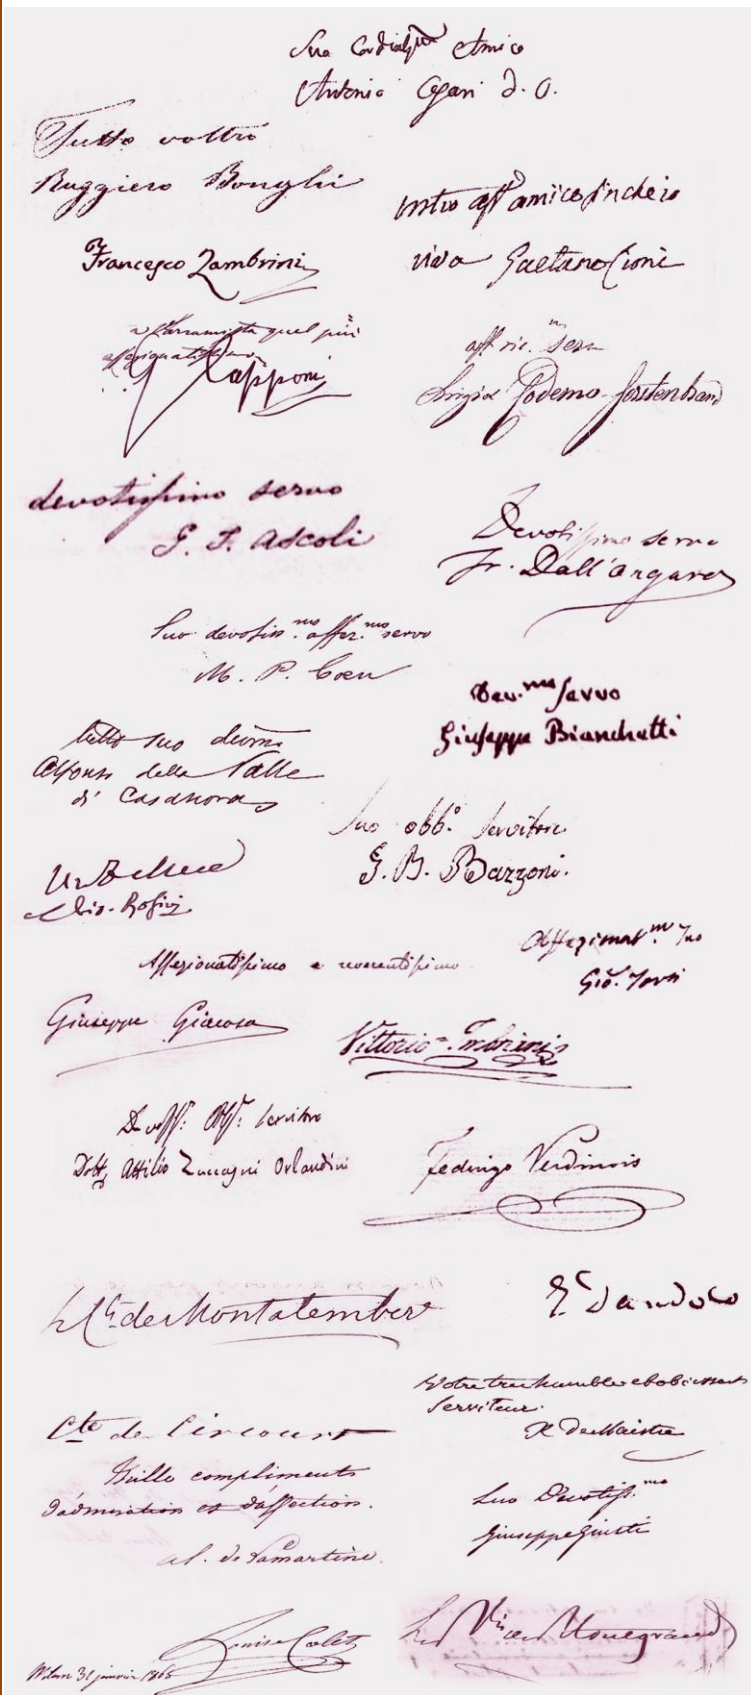 Suo Cordialmo Amico
Antonio Cesari d. O.
Tutto vostro
Ruggiero Bonghi
vostro affo amico
Francesco Zambrini
viva Gaetano Cioni
quel più
affezionatissimo
Capponi
serva
Luigia Codemo-Gerstenbrand
devotissimo servo
G. I. Ascoli
Devotissimo servo
Fr. Dall'Ongaro
Suo devotiss.mo affez.mo servo
M. P. Coen
Dev.mo Servo
Giuseppe Bianchetti
tutto suo
Alfonso della Valle
di Casanova
Suo obb.o Servitore
G. B. Bazzoni.
Gio. Rosini
Affezionatissimo e reverentissimo
Affezionat.mo Suo
Gio. Torti
Giuseppe Giacosa
Vittorio Imbriani
Servitore
Dott. Attilio Zuccagni Orlandini
Federigo Verdinois
Le Cte de Montalembert
T. Dandolo
Votre très humble et obéissant
Serviteur.
X De Maistre
Cte de Circourt
Mille compliments
d'admiration et d'affection.
al. de Lamartine.
Suo Devotiss.mo
Giuseppe Giusti
Louise Colet
Milan 31 janvier 1865